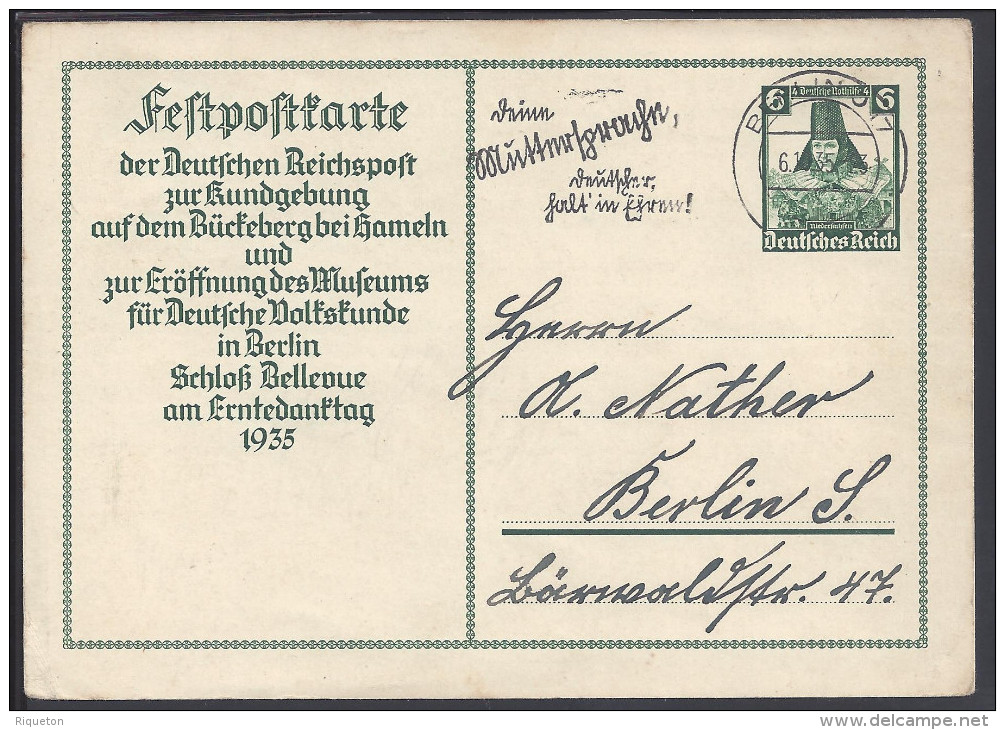 Festpostkarte
der Deutschen Reichspost
zur Kundgebung
auf dem Bückeberg bei Hameln
und
zur Eröffnung des Museums
für Deutsche Volkskunde
in Berlin
Schloß Bellevue
am Erntedanktag
1935
Deine
Muttersprache,
Deutscher,
halt' in Ehren!
BERLIN
6 4 Deutsche Nothilfe 4 6
Niedersachsen
Deutsches Reich
Herrn
A. Nather
Berlin S.
Bärwaldstr. 47.
Riqueton
www.delcampe.net